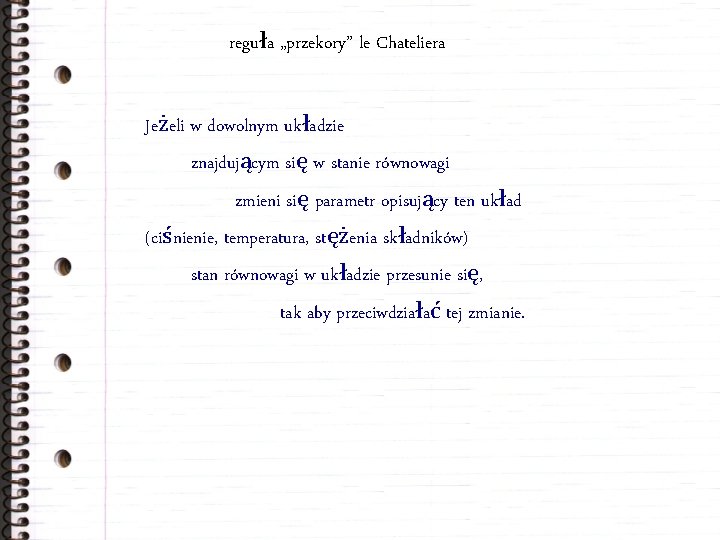 reguła „przekory” le Chateliera
Jeżeli w dowolnym układzie
znajdującym się w stanie równowagi
zmieni się parametr opisujący ten układ
(ciśnienie, temperatura, stężenia składników)
stan równowagi w układzie przesunie się,
tak aby przeciwdziałać tej zmianie.